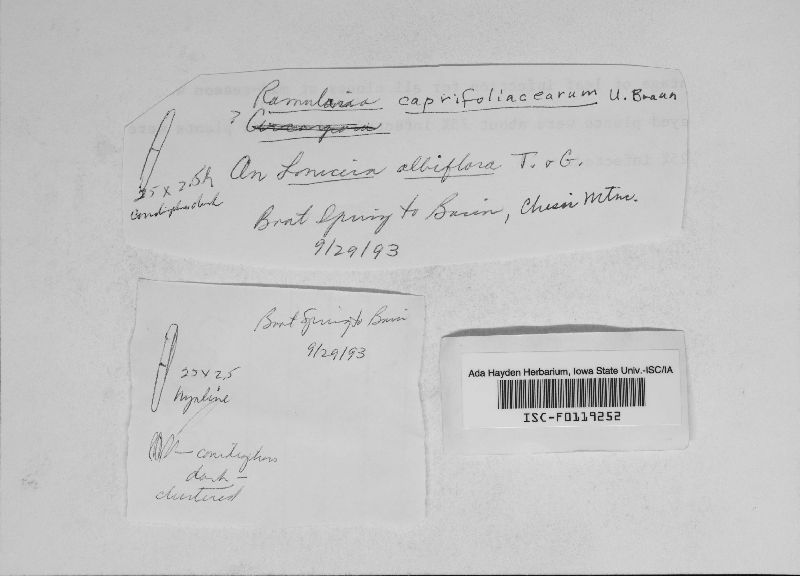 Ramularia caprifoliacearum U. Braun
? Cercospora
25 x 2.5µ
Conidiophores dark
On Lonicera albiflora T. & G.
Boot Spring to Basin, Chisos Mtns.
9/29/93
Boot Spring to Basin
9/29/93
25 x 2.5
Hyaline
— conidiophores
dark —
clustered
Ada Hayden Herbarium, Iowa State Univ.-ISC/IA
ISC-F0119252